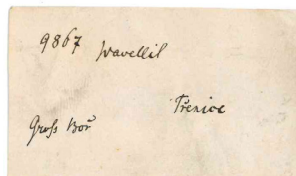 9867 Wavellit
Třenice
Groß Boř